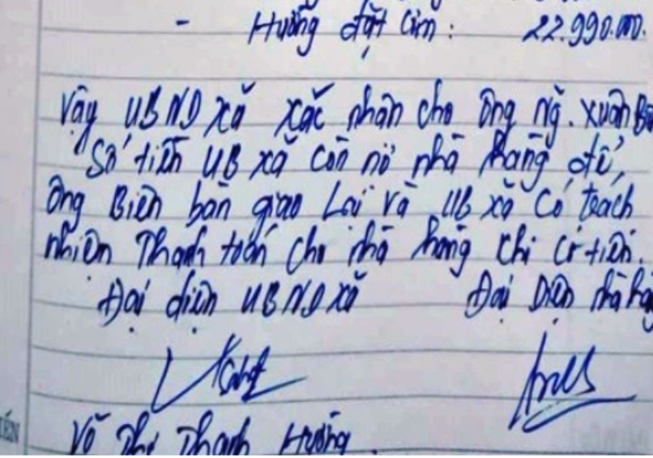 - Hưởng đặt cơm: 22.990.000.
Vậy UBND xã xác nhận cho ông Ng. Xuân
Số tiền UB xã còn nợ nhà hàng để,
ông Biên bàn giao Lại và UB xã có trách
nhiên Thanh toán cho nhà hàng Chị
Đại diện UBND xã Đại Diện nhà
Võ Thị Thanh Hường